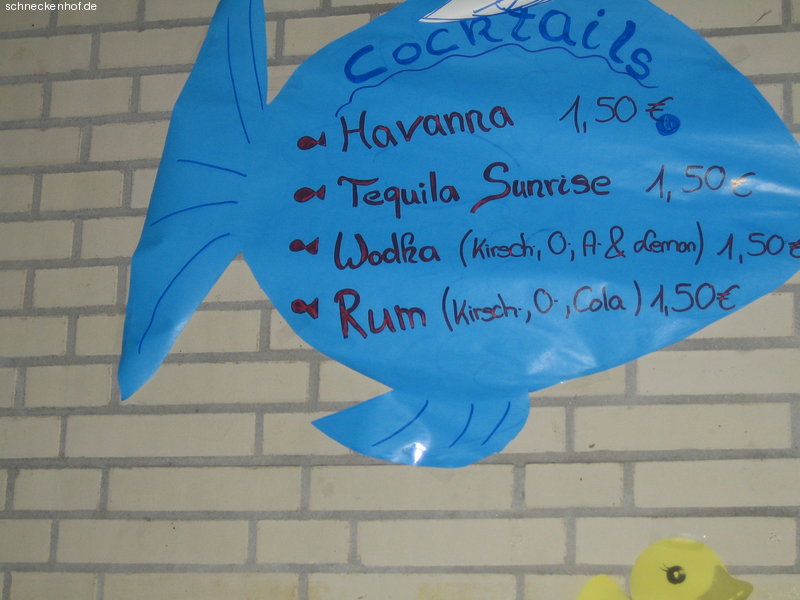 schneckenhof.de
Cocktails
Havanna 1,50 €
Tequila Sunrise 1,50 €
Wodka (Kirsch-, O-, A- & Lemon) 1,50 €
Rum (Kirsch-, O-, Cola) 1,50 €